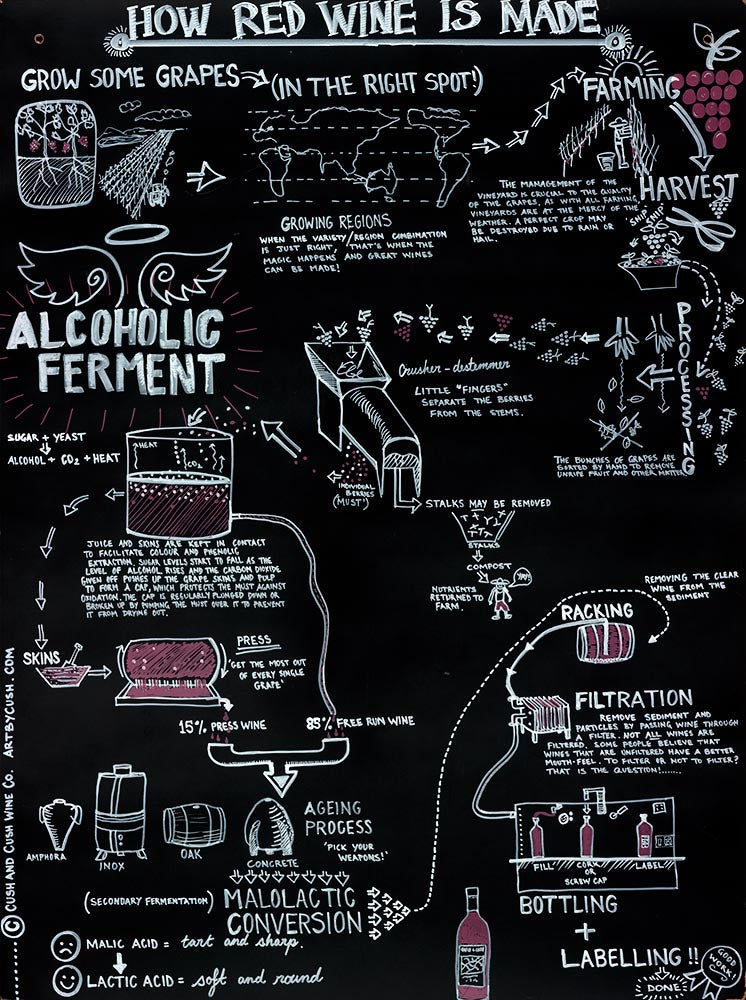 HOW RED WINE IS MADE
GROW SOME GRAPES
(IN THE RIGHT SPOT!)
FARMING
GROWING REGIONS
WHEN THE VARIETY/REGION COMBINATION
IS JUST RIGHT, THAT'S WHEN THE
MAGIC HAPPENS AND GREAT WINES
CAN BE MADE!
THE MANAGEMENT OF THE
VINEYARD IS CRUCIAL TO THE QUALITY
OF THE GRAPES, AS WITH ALL FARMING,
VINEYARDS ARE AT THE MERCY OF THE
WEATHER. A PERFECT CROP MAY
BE DESTROYED DUE TO RAIN OR
HAIL.
HARVEST
SNIP
SNIP
PROCESSING
THE BUNCHES OF GRAPES ARE
SORTED BY HAND TO REMOVE
UNRIPE FRUIT AND OTHER MATTER
Crusher-destemmer
LITTLE "FINGERS"
SEPARATE THE BERRIES
FROM THE STEMS.
INDIVIDUAL
BERRIES
('MUST')
STALKS MAY BE REMOVED
STALKS
COMPOST
NUTRIENTS
RETURNED TO
FARM.
ALCOHOLIC
FERMENT
SUGAR + YEAST
ALCOHOL + CO2 + HEAT
HEAT
CO2
JUICE AND SKINS ARE KEPT IN CONTACT
TO FACILITATE COLOUR AND PHENOLIC
EXTRACTION. SUGAR LEVELS START TO FALL AS THE
LEVEL OF ALCOHOL RISES AND THE CARBON DIOXIDE
GIVEN OFF PUSHES UP THE GRAPE SKINS AND PULP
TO FORM A CAP, WHICH PROTECTS THE MUST AGAINST
OXIDATION. THE CAP IS REGULARLY PLUNGED DOWN OR
BROKEN UP BY PUMPING THE MUST OVER IT TO PREVENT
IT FROM DRYING OUT.
SKINS
PRESS
'GET THE MOST OUT
OF EVERY SINGLE
GRAPE'
15% PRESS WINE
85% FREE RUN WINE
AMPHORA
INOX
OAK
CONCRETE
AGEING
PROCESS
'PICK YOUR
WEAPONS!'
(SECONDARY FERMENTATION)
MALOLACTIC
CONVERSION
MALIC ACID = tart and sharp.
LACTIC ACID = soft and round
REMOVING THE CLEAR
WINE FROM THE
SEDIMENT
RACKING
FILTRATION
REMOVE SEDIMENT AND
PARTICLES BY PASSING WINE THROUGH
A FILTER. NOT ALL WINES ARE
FILTERED. SOME PEOPLE BELIEVE THAT
WINES THAT ARE UNFILTERED HAVE A BETTER
MOUTH-FEEL. TO FILTER OR NOT TO FILTER?
THAT IS THE QUESTION!......
FILL
CORK
OR
SCREW CAP
LABEL
BOTTLING
+
LABELLING!!
GOOD
WORK!
DONE
© CUSH AND CUSH WINE CO. ARTBYCUSH.COM